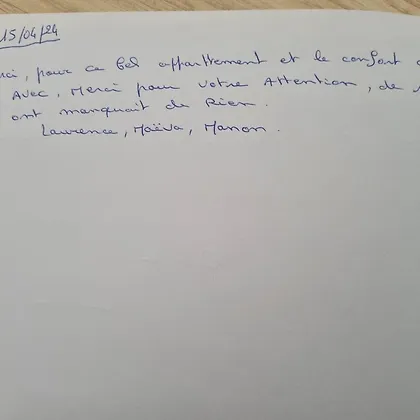 15/04/24
ci, pour ce bel appartement et le confort
Avec, Merci pour votre Attention, de
ont manquait de Rien.
Laurence, Maëva, Manon.